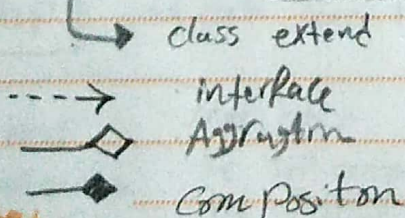 class extend
interface
Aggragtion
Compositon